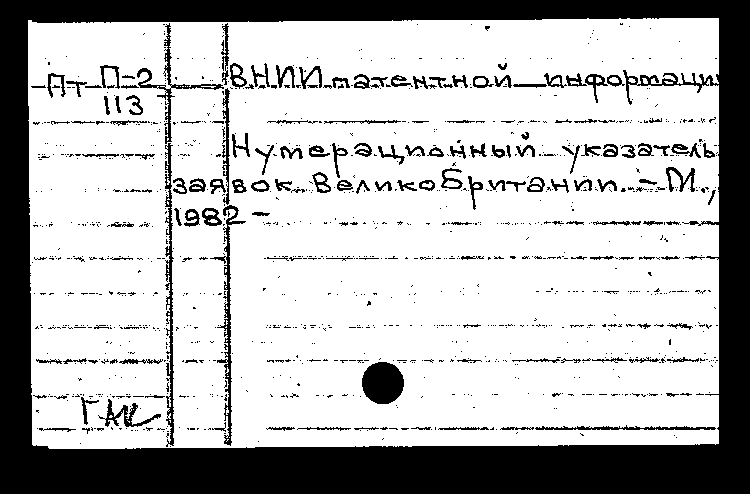 Пт П-2 ВНИИ патентной информации
113
Нумерационный указатель
заявок Великобритании. – М.,
1982 –
ГАК